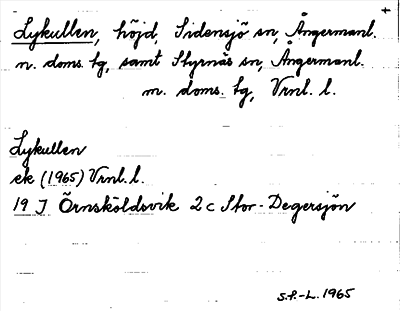 Lykullen, höjd, Sidensjö sn, Ångermanl.
n. doms. tg, samt Styrnäs sn, Ångermanl.
m. doms. tg, Vrnl. l.
Lykullen
ek (1965) Vrnl. l.
19 J Örnsköldsvik 2 c Stor-Degersjön
S.P.-L. 1965